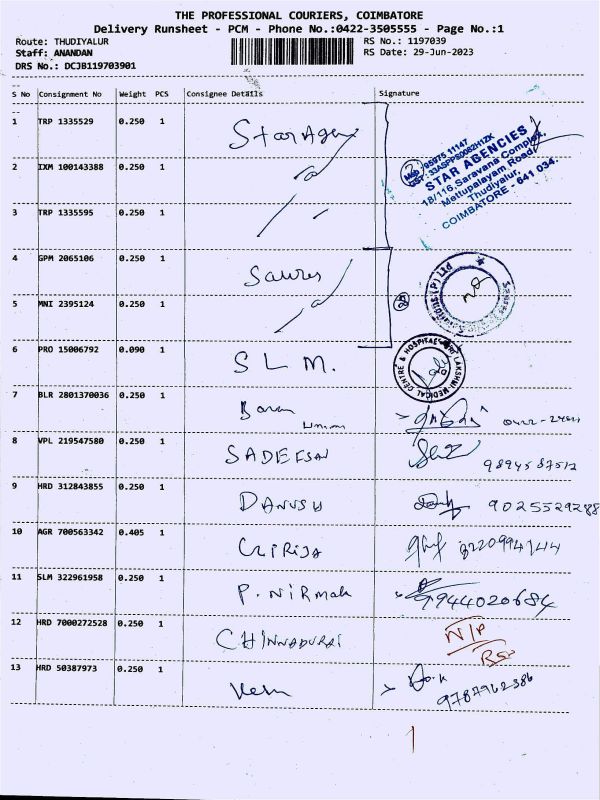 THE PROFESSIONAL COURIERS, COIMBATORE
Delivery Runsheet - PCM - Phone No.:0422-3505555 - Page No.:1
Route: THUDIYALUR RS No.: 1197039
Staff: ANANDAN RS Date: 29-Jun-2023
DRS No.: DCJB119703901
S No Consignment No Weight PCS Consignee Details Signature
1 TRP 1335529 0.250 1 Star Agen
95975 11147
GST : 33ASPPS0082H1ZK
STAR AGENCIES
18/116, Saravana Complex,
Mettupalayam Road,
Thudiyalur,
COIMBATORE - 641 034.
2 IXM 100143388 0.250 1
3 TRP 1335595 0.250 1
4 GPM 2065106 0.250 1
5 MNI 2395124 0.250 1
6 PRO 15006792 0.090 1 SLM.
LAKSHMI MEDICAL CENTRE & HOSPITAL
7 BLR 2801370036 0.250 1
8 VPL 219547580 0.250 1 9894587512
9 HRD 312843855 0.250 1 DANUSU 9025529288
10 AGR 700563342 0.405 1 GIRIJA
11 SLM 322961958 0.250 1 P. NiRmala 9944020684
12 HRD 7000272528 0.250 1 CHINNADURAI N/P
13 HRD 50387973 0.250 1 9787962386
1